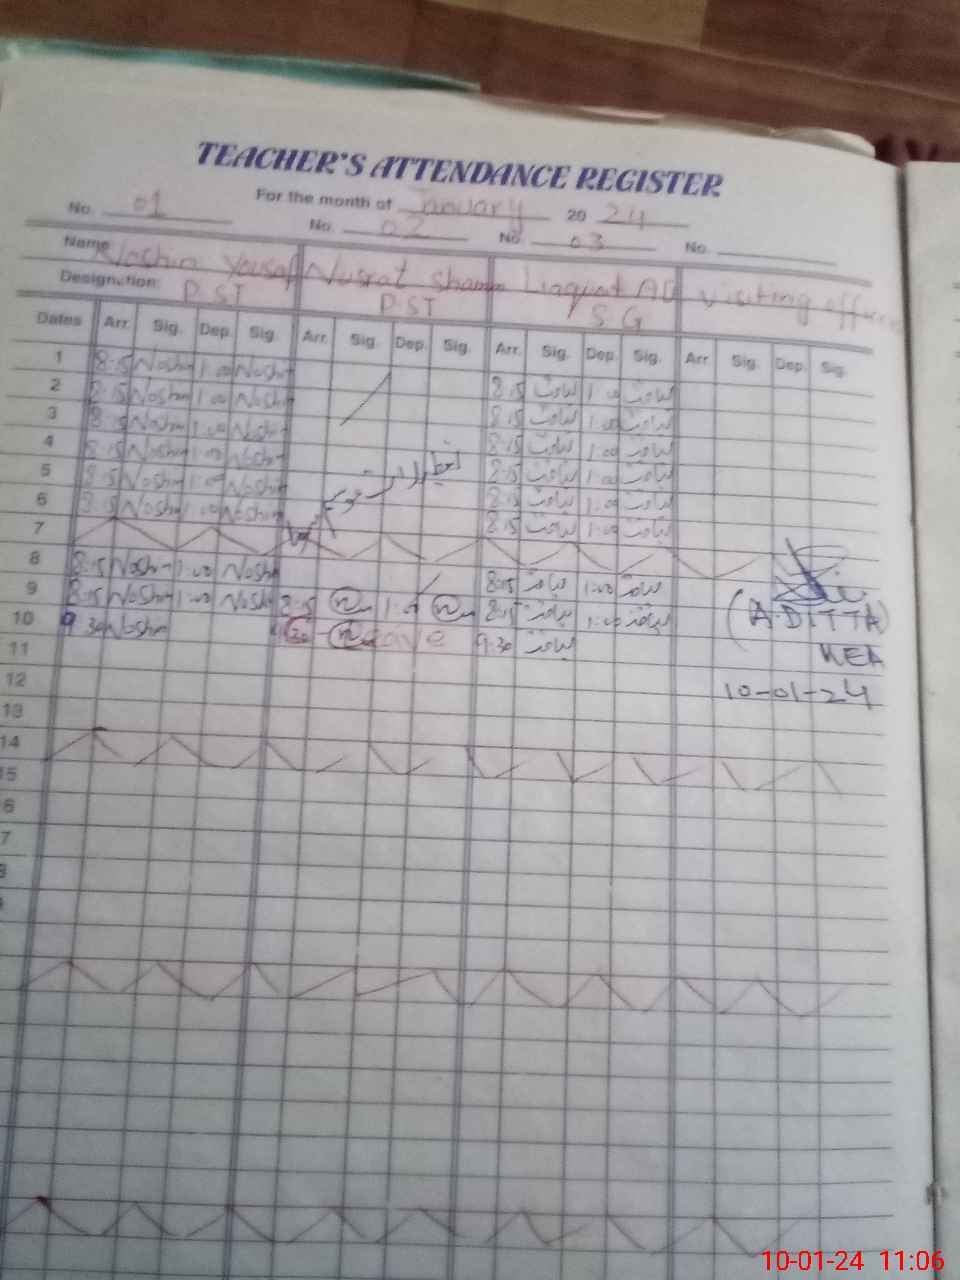 TEACHER'S ATTENDANCE REGISTER
For the month of January 20 24
No. 01 No. 02 No. 03 No.
Name Noshin Yousaf Nusrat Liaquat Ali visiting
Designation: P.ST P.ST S.G
Dates Arr. Sig. Dep. Sig. Arr. Sig. Dep. Sig. Arr. Sig. Dep. Sig. Arr. Sig. Dep. Sig.
1 8:15 Noshin 1:00 Noshin
2 8:15 Noshin 1:00 Noshin 8:15 لیاقت 1:00 لیاقت
3 8:15 Noshin 1:00 Noshin 8:15 لیاقت 1:00 لیاقت
4 8:15 Noshin 1:00 Noshin 8:15 لیاقت 1:00 لیاقت
5 8:15 Noshin 1:00 Noshin 8:15 لیاقت 1:00 لیاقت
6 8:15 Noshin 1:00 Noshin 8:15 لیاقت 1:00 لیاقت
7 8:15 لیاقت 1:00 لیاقت
8 8:15 Noshin 1:00 Noshin 8:15 لیاقت 1:00 لیاقت
9 8:15 Noshin 1:00 Noshin 8:15 1:00 8:15 لیاقت 1:00 لیاقت
10 9:30 Noshin leave 9:30 لیاقت
(A.DITTA)
11
12
10-01-24
13
14
15
6
7
10-01-24 11:06